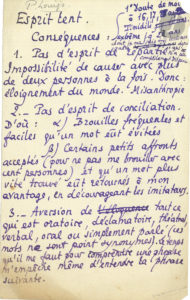 Esprit lent.
Conséquences :
1. Pas d'esprit de répartie.
Impossibilité de causer avec plus
de deux personnes à la fois. Donc :
éloignement du monde. Misanthropie
2. _ Pas d'esprit de conciliation.
D'où : α) Brouilles fréquentes et
faciles qu'un mot eût évitées
β) Certains petits affronts
acceptés (pour ne pas me brouiller avec
cent personnes) et qu'un mot plus
vite trouvé eût retourné à mon
avantage, en décourageant les imitateurs.
3. _ Aversion de tout ce
qui est oratoire, déclamatoire, théâtral
verbal, oral ou simplement parlé (ces
mots ne sont point synonymes). Le temps
qu'il me faut pour comprendre une phrase
m'empêche même d'entendre la phrase
suivante.